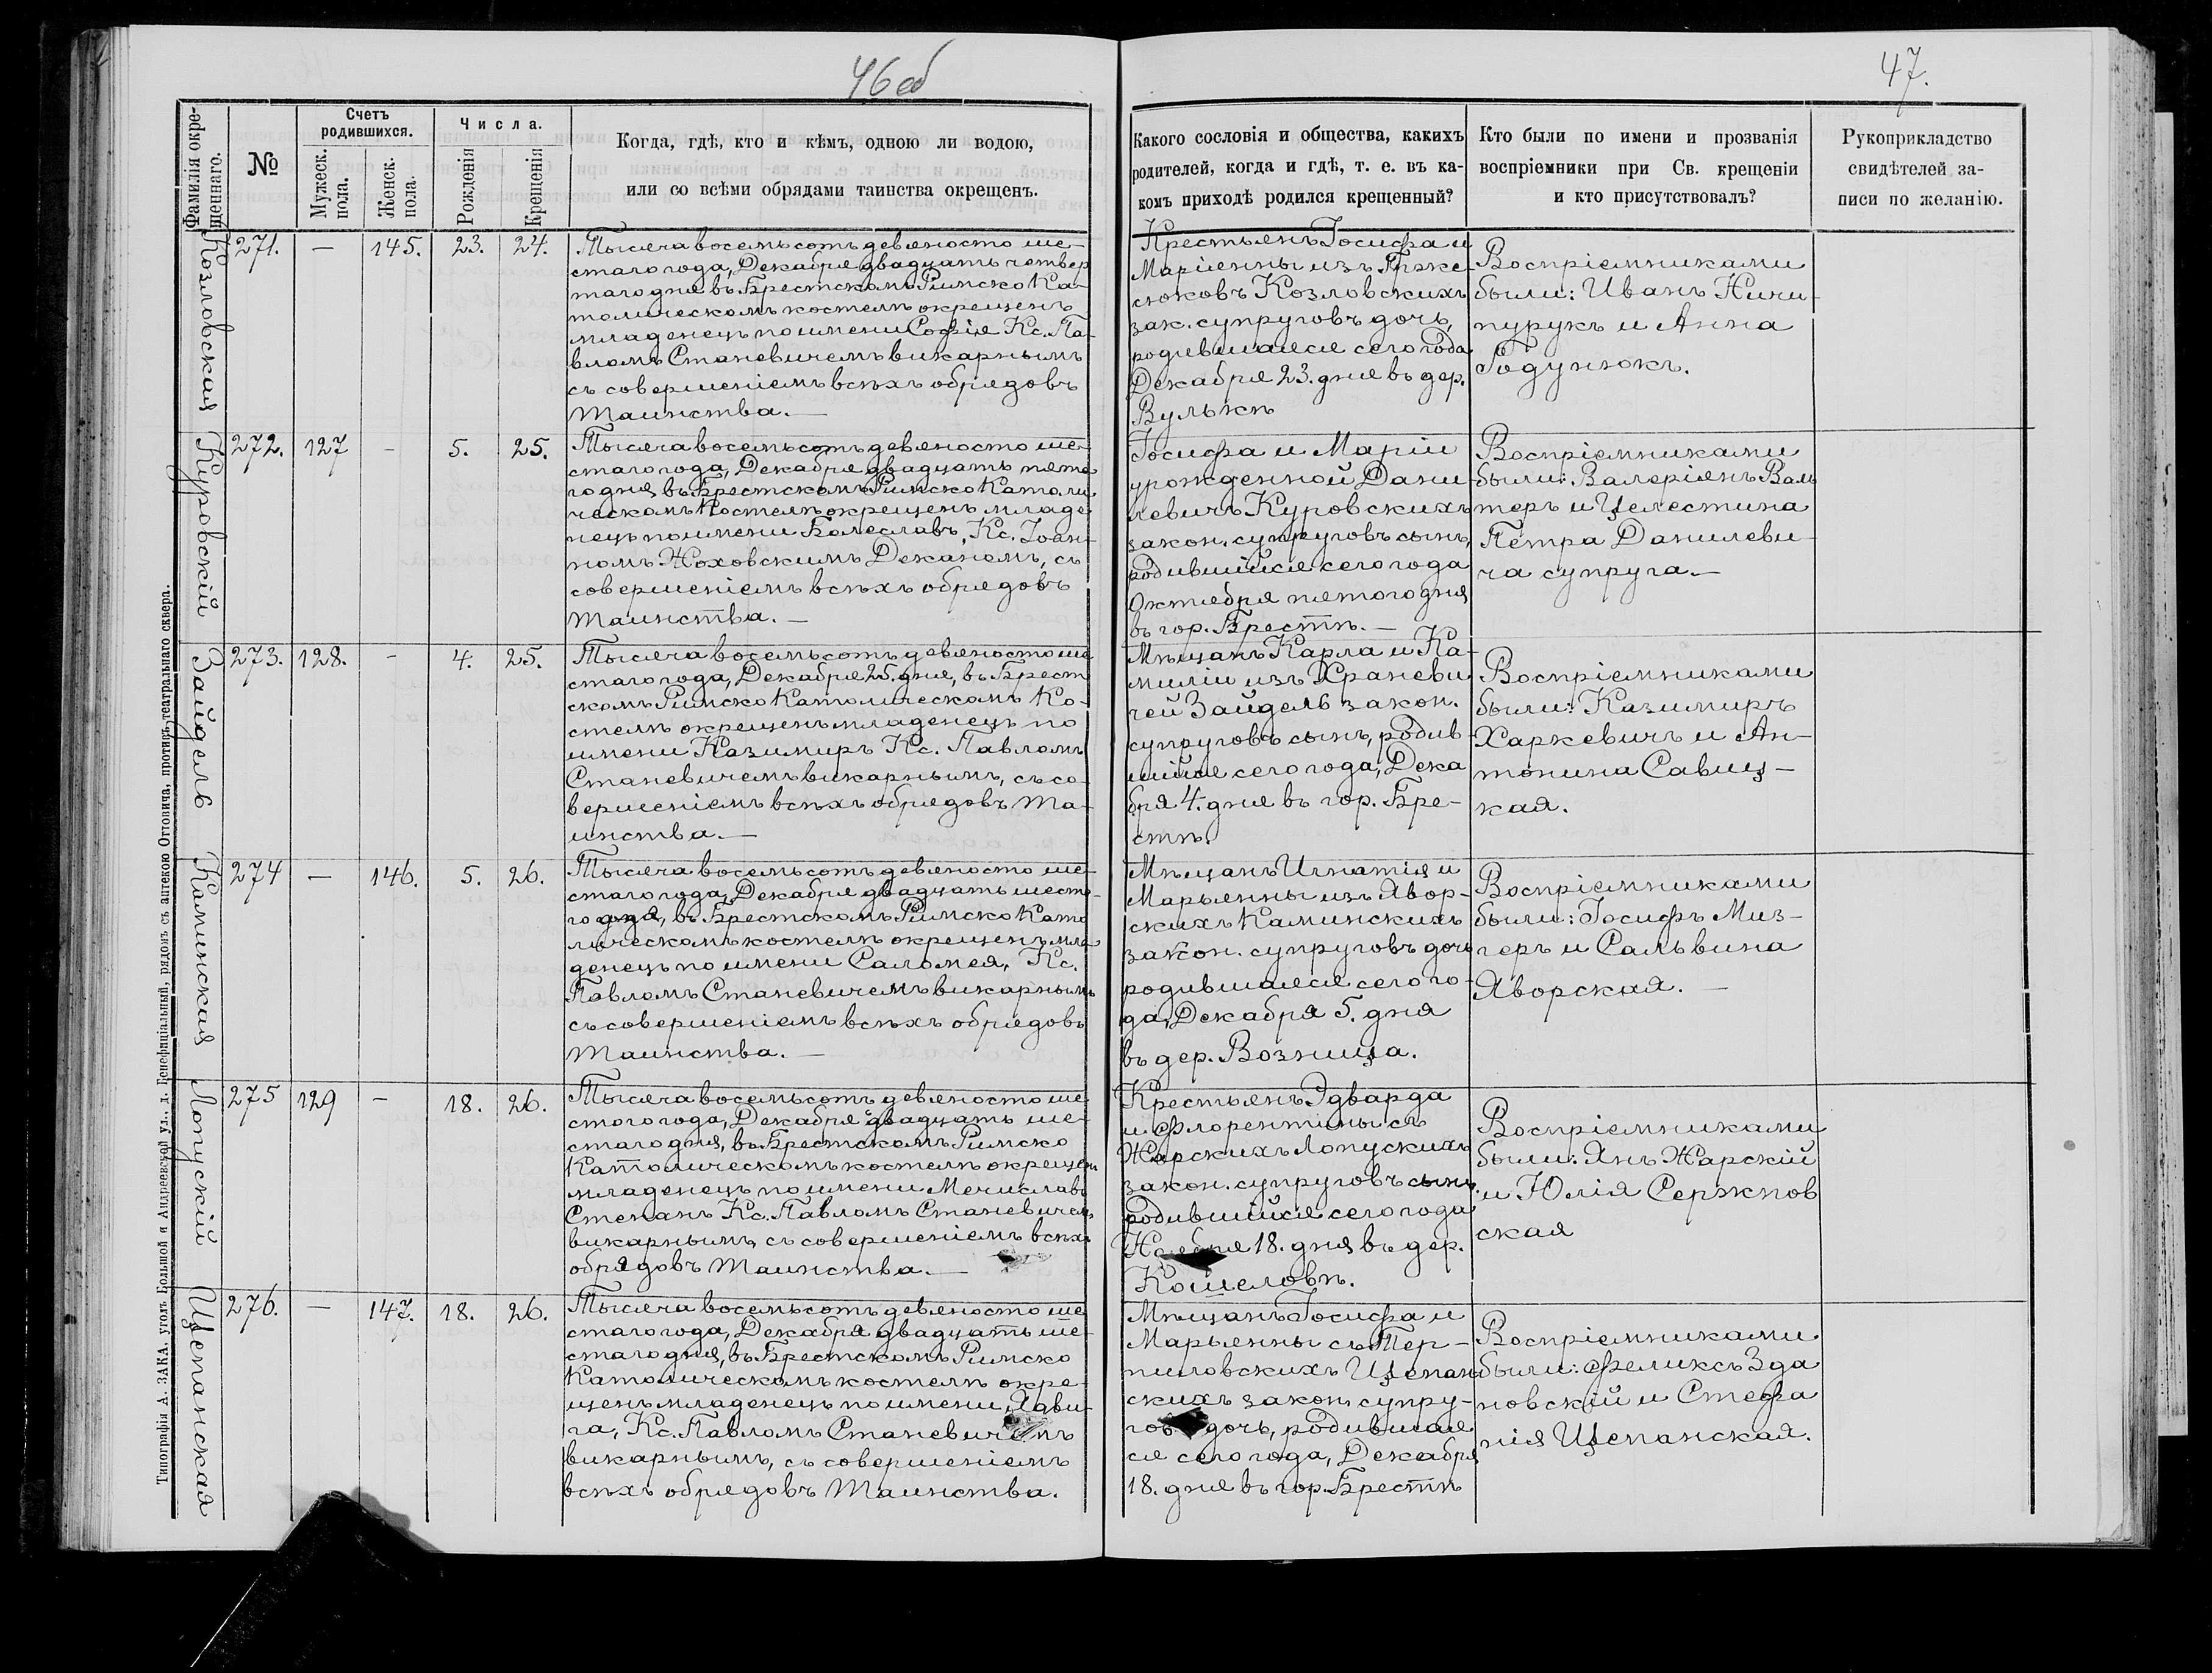 46 об
47.
Фамилія окре-
щеннаго.
№
Счетъ
родившихся.
Мужеск.
пола.
Женск.
пола.
Числа.
Рожденія
Крещенія
Когда, гдѣ, кто и кѣмъ, одною ли водою,
или со всѣми обрядами таинства окрещенъ.
Какого сословія и общества, какихъ
родителей, когда и гдѣ, т. е. въ ка-
комъ приходѣ родился крещенный?
Кто были по имени и прозванія
воспріемники при Св. крещеніи
и кто присутствовалъ?
Рукоприкладство
свидѣтелей за-
писи по желанію.
Козловская
271.
—
145.
23.
24.
Тысяча восемьсотъ девяносто ше-
стаго года, Декабря двадцать четвер
таго дня въ Брестскомъ Римско Ка-
толическомъ костелѣ окрещенъ
младенецъ по имени Софія Кс. Па-
вломъ Станевичемъ викарнымъ
съ совершеніемъ всѣхъ обрядовъ
Таинства. —
Крестьянъ Іосифа и
Маріянны изъ Грже-
сюковъ Козловскихъ
зак. супруговъ дочь,
родившаяся сего года
Декабря 23. дня въ дер.
Вулькѣ
Воспріемниками
были: Иванъ Ничи-
пурукъ и Анна
Годунюкъ.
Куровскій
272.
127
-
5.
25.
Тысяча восемьсотъ девяносто ше-
стаго года, Декабря двадцать пята
го дня, въ Брестскомъ Римско Католи
ческомъ Костелѣ окрещенъ младе
нецъ по имени Болеславъ, Кс. Іоан-
номъ Жоховскимъ Деканомъ, съ
совершеніемъ всѣхъ обрядовъ
Таинства. —
Іосифа и Маріи
урожденной Дани-
левичъ Куровскихъ
закон. супруговъ сынъ,
родившійся сего года
Октября пятого дня
въ гор. Брестѣ. —
Воспріемниками
были: Валеріянъ Валь
теръ и Целестина
Петра Данилеви-
ча супруга. —
Зайдель
273.
128.
-
4.
25.
Тысяча восемьсотъ девяносто ше
стаго года, Декабря 25. дня, въ Брест
скомъ Римско Католическомъ Ко-
стелѣ окрещенъ младенецъ по
имени Казимиръ Кс. Павломъ
Станевичемъ викарнымъ, съ со-
вершеніемъ всѣхъ обрядовъ Та-
инства. —
Мѣщанъ Карла и Ка-
миліи изъ Храневи
чей Зайдель закон.
супруговъ сынъ, родив-
шійся сего года, Дека
бря 4. дня въ гор. Бре-
стѣ.
Воспріемниками
были: Казимиръ
Харкевичъ и Ан-
тонина Савиц-
кая.
Каминская
274
—
146.
5.
26.
Тысяча восемьсотъ девяносто ше-
стаго года, Декабря двадцать шеста-
го дня, въ Брестскомъ Римско Като
лическомъ костелѣ окрещенъ мла
денецъ по имени Саломея, Кс.
Павломъ Станевичемъ викарнымъ
съ совершеніемъ всѣхъ обрядовъ
Таинства. —
Мѣщанъ Игнатія и
Марьянны изъ Явор-
скихъ Каминскихъ
закон. супруговъ дочь
родившаяся сего го-
да, Декабря 5. дня
въ дер. Возница.
Воспріемниками
были: Іосифъ Миз-
геръ и Сальвина
Яворская. —
Лопускій
275
129
-
18.
26.
Тысяча восемьсотъ девяносто ше
стого года, Декабря двадцать ше-
стаго дня, въ Брестскомъ Римско
Католическомъ костелѣ окрещенъ
младенецъ по имени Мечиславъ
Степанъ Кс. Павломъ Станевичемъ
викарнымъ, съ совершеніемъ всѣхъ
обрядовъ Таинства. —
Крестьянъ Эдварда
и Флорентины съ
Жарскихъ Лопускихъ
закон. супруговъ сынъ,
родившійся сего года
Ноября 18. дня въ дер.
Кошеловѣ.
Воспріемниками
были: Янъ Жарскій
и Юлія Сержпов
ская
Щепанская
276.
—
147.
18.
26.
Тысяча восемьсотъ девяносто ше
стаго года, Декабря двадцать ше-
стаго дня, въ Брестскомъ Римско
Католическомъ костелѣ окре-
щенъ младенецъ по имени, Ядви-
га, Кс. Павломъ Станевичемъ
викарнымъ, съ совершеніемъ
всѣхъ обрядовъ Таинства.
Мѣщанъ Іосифа и
Марьянны съ Тер-
пиловскихъ Щепан
скихъ закон. супру-
говъ дочь, родившая
ся сего года, Декабря
18. дня въ гор. Брестѣ
Воспріемниками
были: Феликсъ Зда
новскій и Стефа
нія Щепанская.
Типографія А. ЗАКА. уголъ Большой и Андреевской ул., д. Бенефаціальный, рядомъ съ аптекою Оттовича, противъ театральнаго сквера.